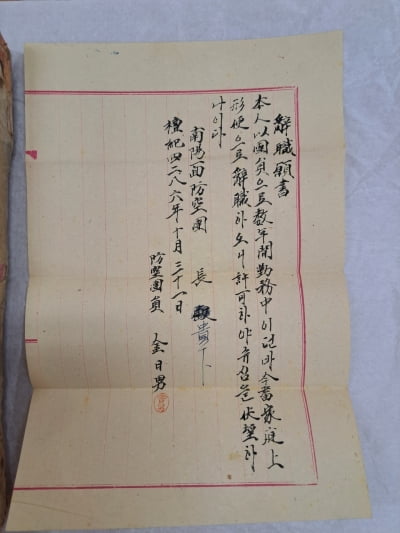 辭職願書
本人以團員으로數年間勤務中이던바今番家庭上
形便으로辭職하오니許可하야주심을伏望하
나이다
檀紀四二八六年十月三十一日
防空團員 金日男
南陽面防空團長 貴下